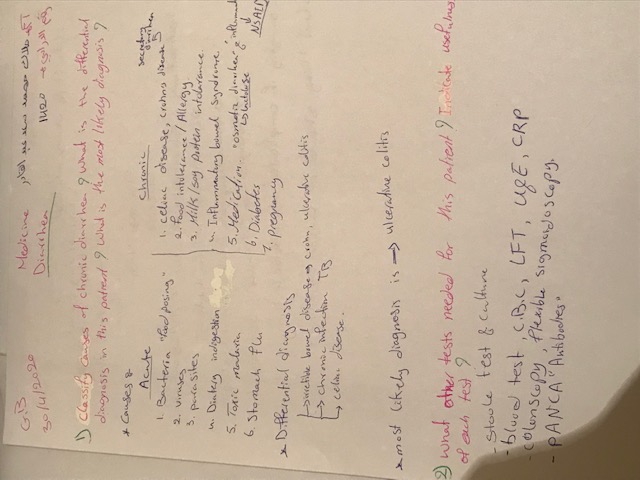 G.B
30/4/2020
Medicine
Diarrhea
1420
1) Classify causes of chronic diarrhea? what is the differential
diagnosis in this patient? what is the most likely diagnosis?
* Causes
Acute
1. Bacteria "food posing"
2. viruses
3. parasites
4. Dialery indigestion
5. Toxic malaria
6. Stomach flu
Chronic
1. celiac disease, crohns disease
secretory
diarrhea
2. Food intolerance / Allergy
3. Milk / Soy protein intolerance.
4. Inflammatory bowel syndrome.
5. Medication. "osmotic diarrhea & inflammat
↳ lactulose
↓
NSAID
6. Diabetes
7. pregnancy
* Differential diagnosis
↳ chronic infection TB
↳ celiac disease.
* most likely diagnosis is → ulcerative colitis
2) What other tests needed for this patient? Indicate usefulness
of each test?
- Stoole test & culture
- blood test, C.B.C, LFT, U&E, CRP
- colonscopy, flexible sigmoidoscopy.
- PANCA "Antibodies"